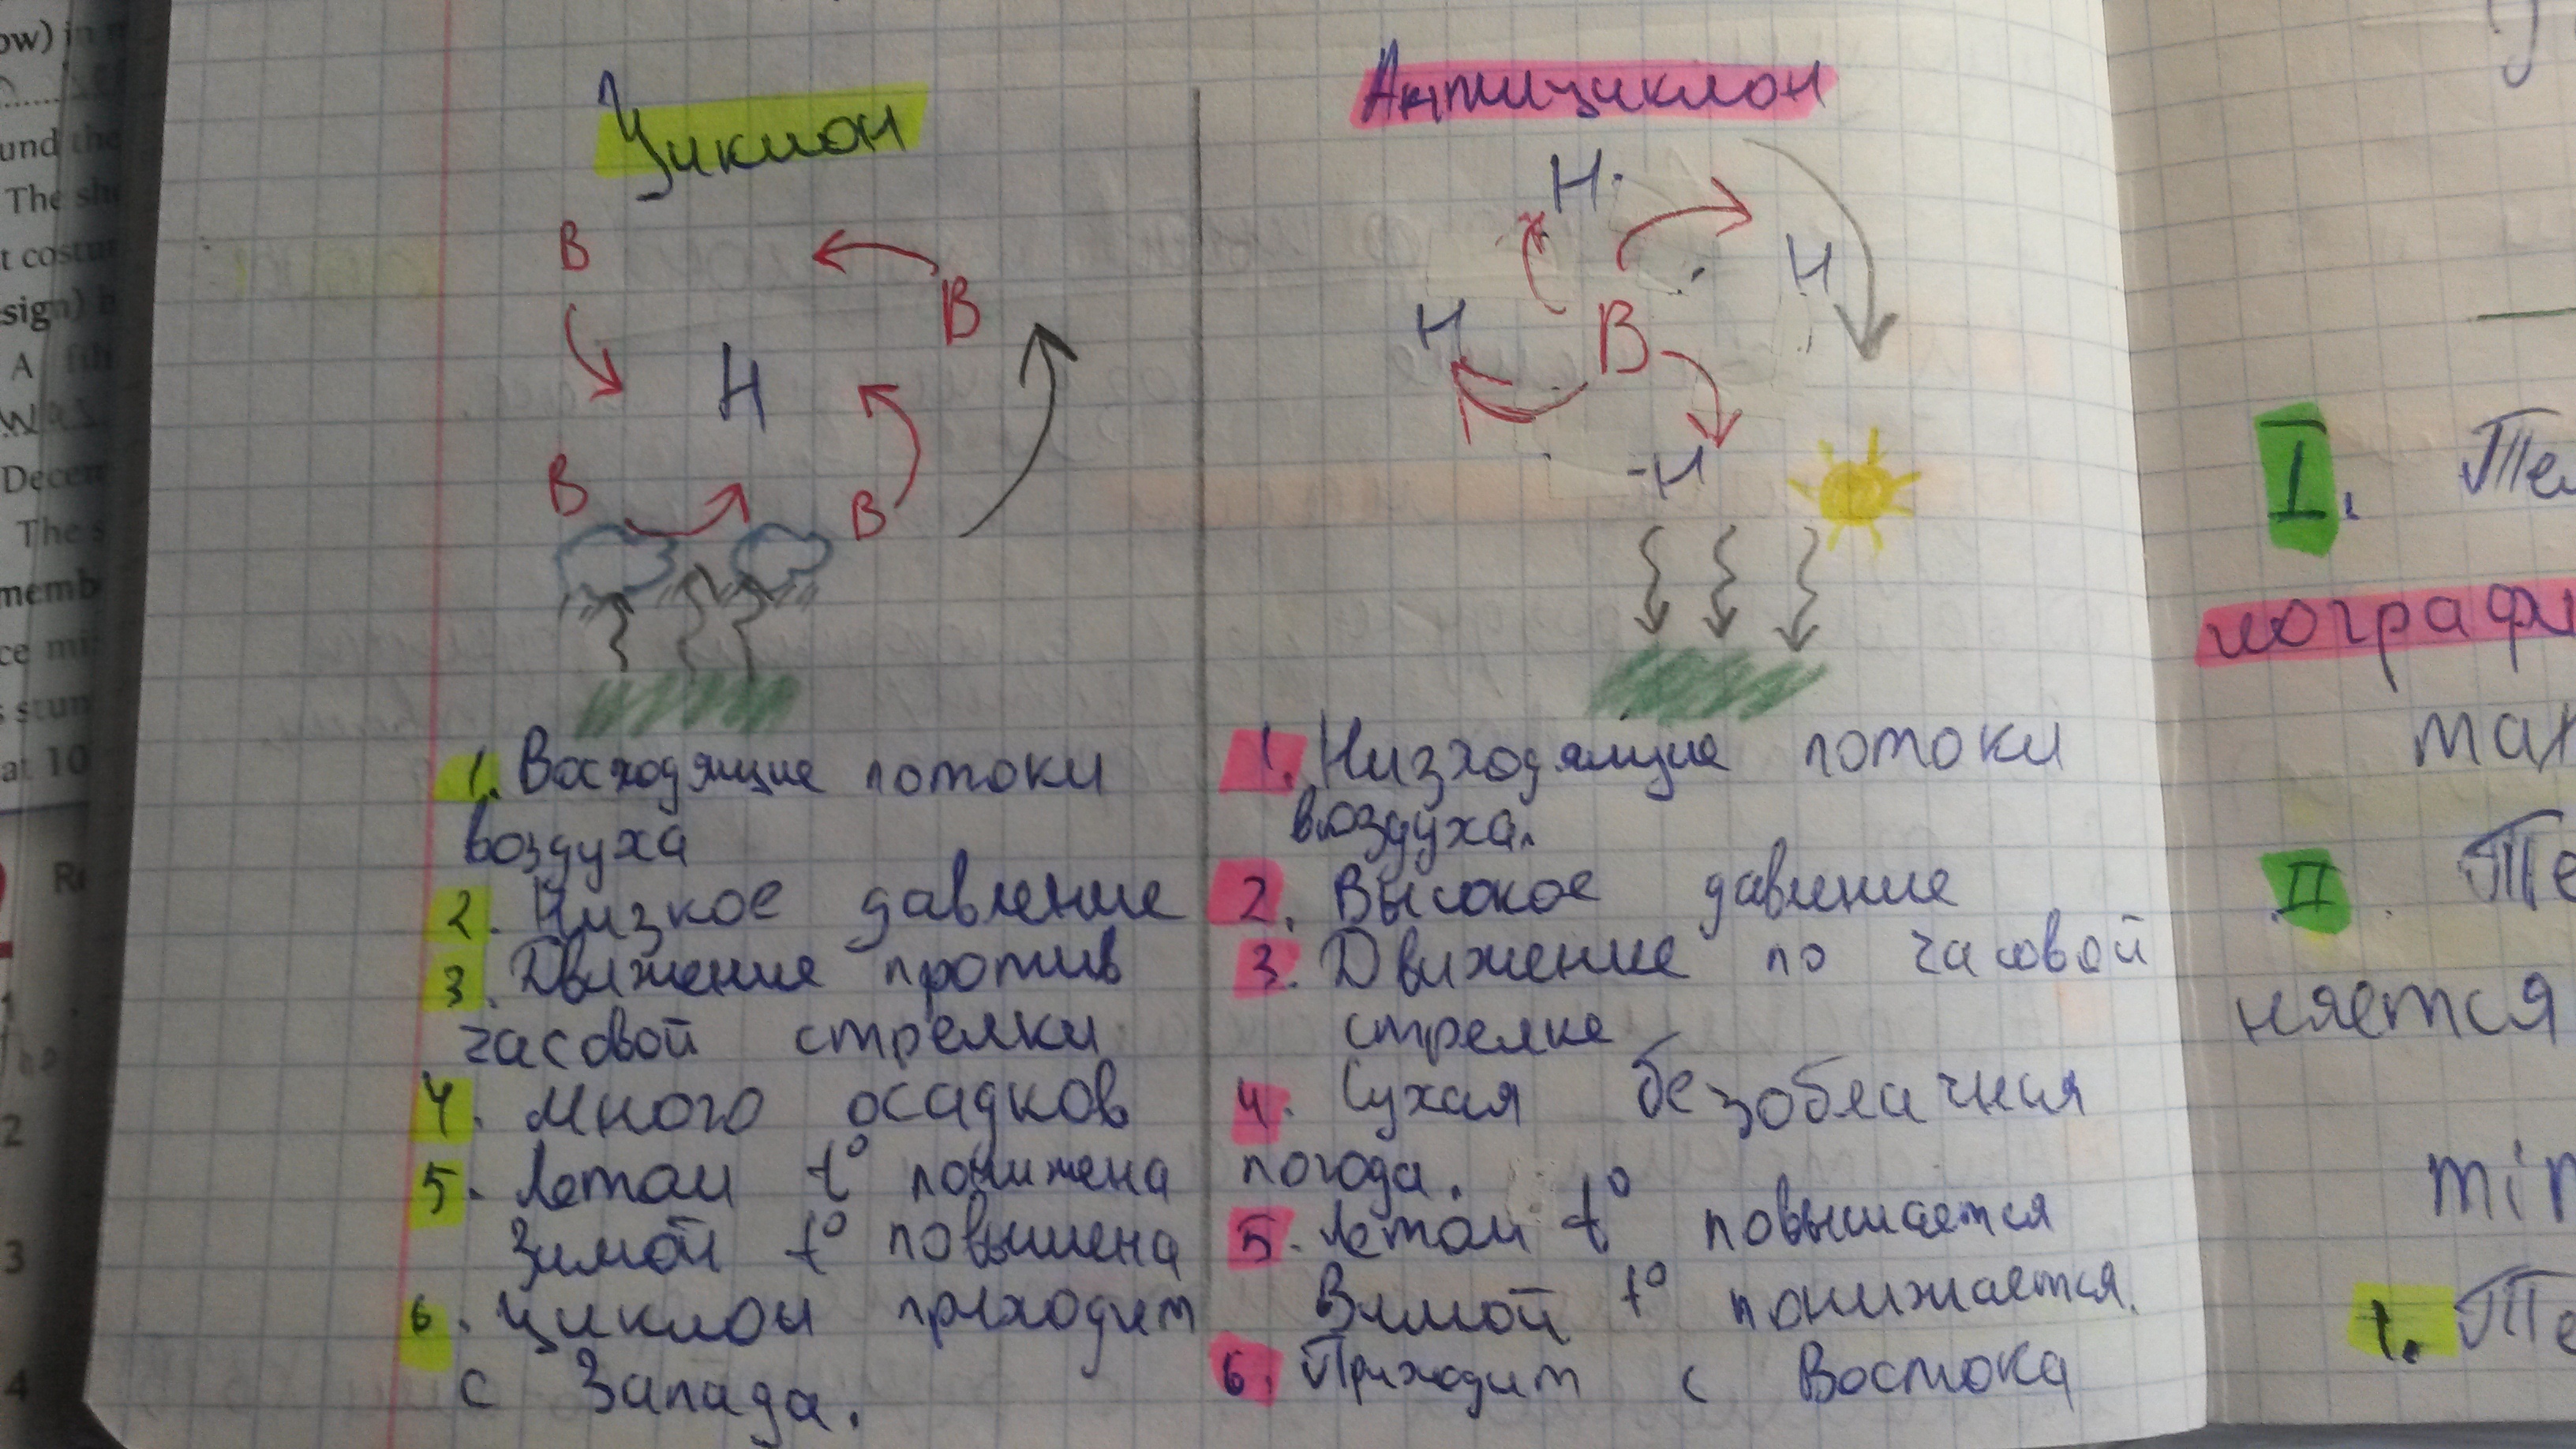 Циклон
В
В
Н
В
В
1. Восходящие потоки
воздуха
2. Низкое давление
3. Движение против
часовой стрелки
4. Много осадков
5. Летом t° понижена
Зимой t° повышена
6. Циклон приходит
с Запада.
Антициклон
Н
Н
Н
В
Н
1. Низходящие потоки
воздуха.
2. Высокое давление
3. Движение по часовой
стрелке
4. Сухая безоблачная
погода.
5. Летом t° повышается
Зимой t° понижается.
6. Приходит с Востока
I.
II.
няется
1.
ow) in
und the
The
t costu
sign)
A
Decem
The s
memb
ce mi
at 10
1
2
3
4